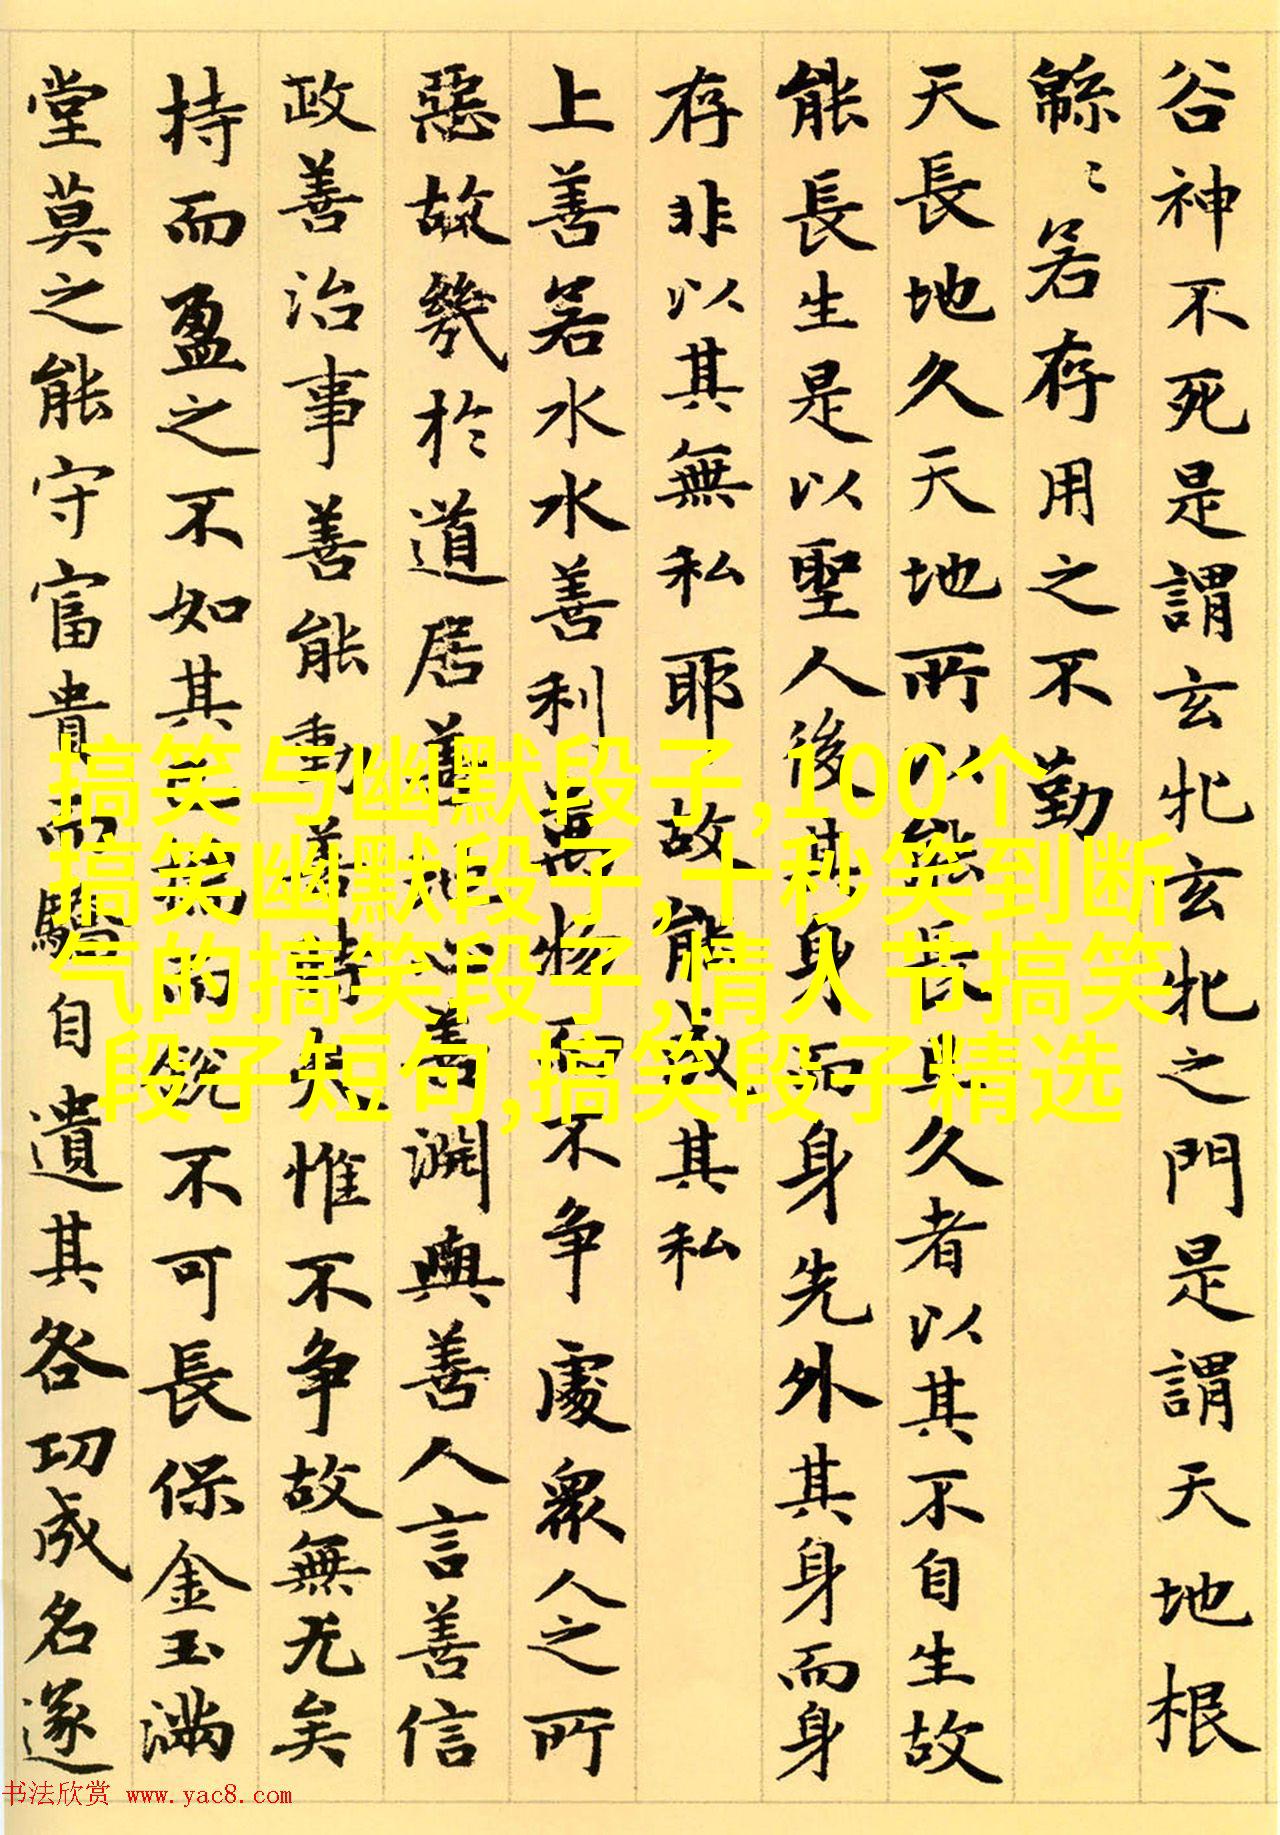 谷神不死是謂玄牝玄牝之門是謂天地根
緜〻若存用之不勤
天長地久天地所以能長且久者以其不自生故
能長生是以聖人後其身而身先外其身而身
存非以其無私耶故能成其私
上善若水水善利萬物而不争處衆人之所
惡故幾於道居善地心善淵與善人言善信
政善治事善能動善時夫惟不争故無尤矣
持而盈之不如其已揣而銳不可長保金玉滿
堂莫之能守富貴而驕自遺其咎功成名遂
搞笑与幽默段子,100个
搞笑幽默段子,十秒笑到断
气的搞笑段子,情人节搞笑
段子短句,搞笑段子精选
书法欣赏 www.yac8.com